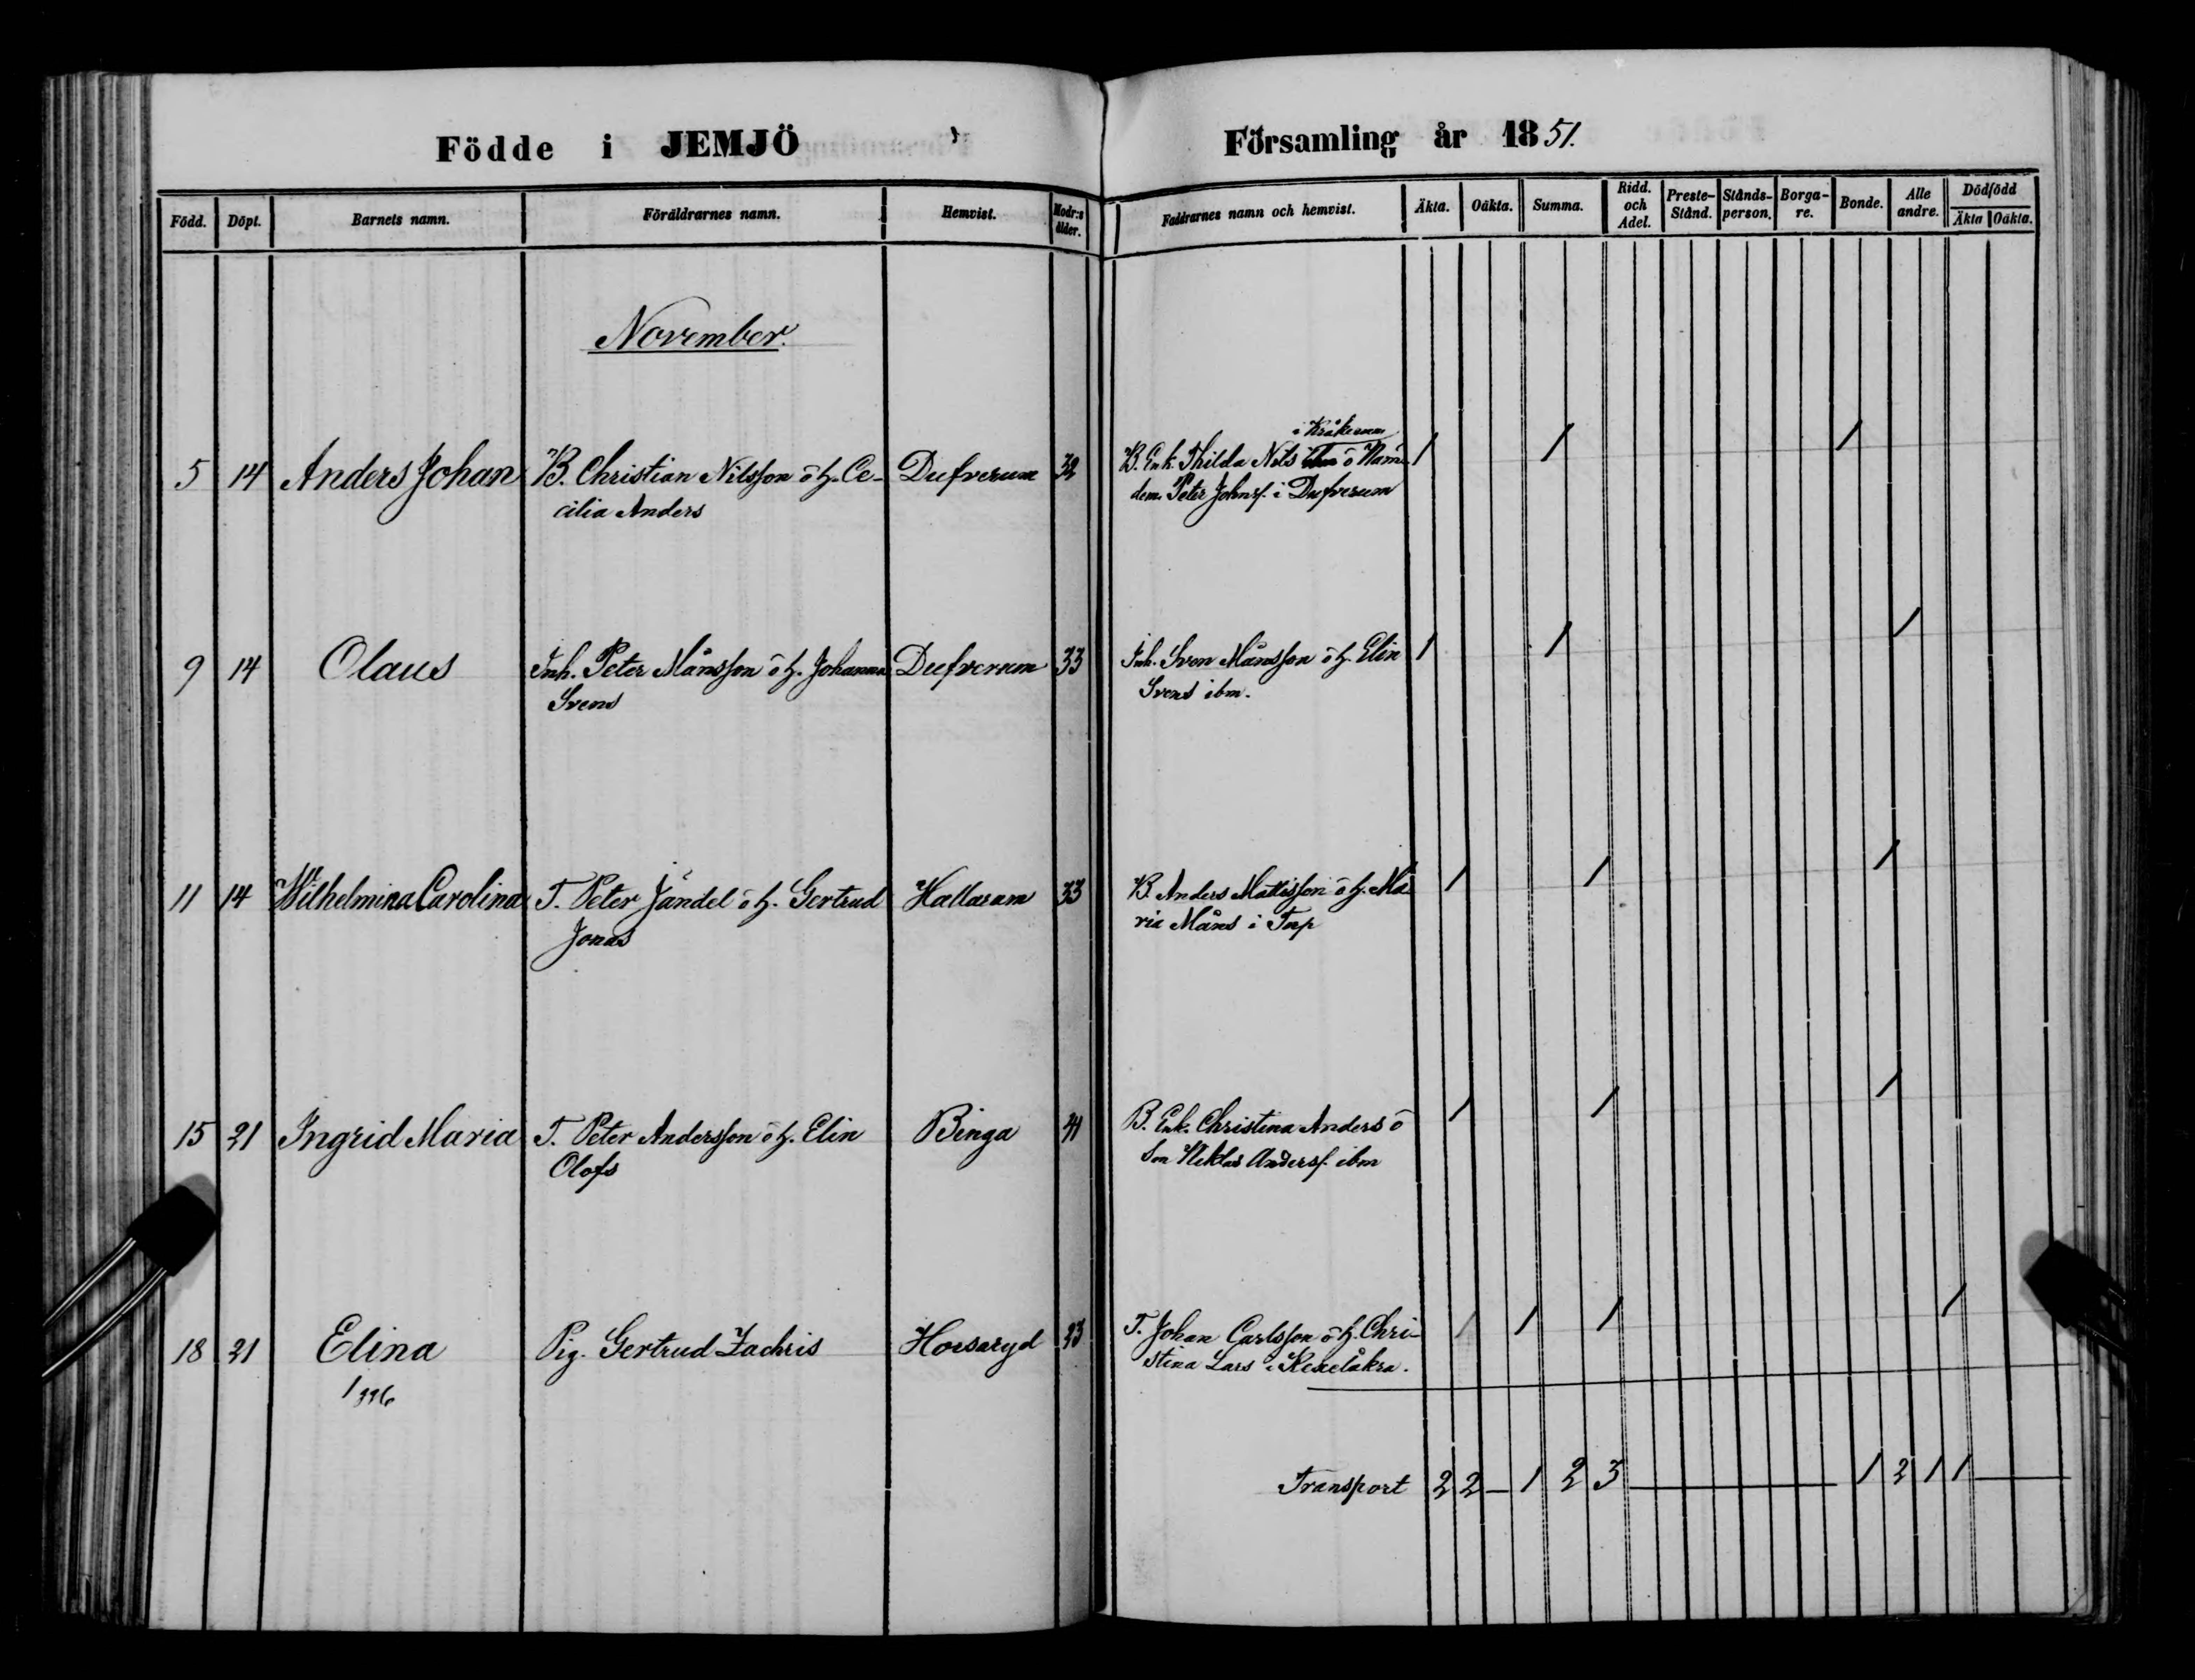 Födde i JEMJÖ
Församling år 1851.
Född. Döpt. Barnets namn. Föräldrarnes namn. Hemvist. Modr:s ålder. Faddrarnes namn och hemvist. Äkta. Oäkta. Summa. Ridd. och Adel. Preste-Stånd. Stånds-person. Borga-re. Bonde. Alle andre. Dödfödd Äkta Oäkta.
November.
i Kråkerum
5 14 Anders Johan B. Christian Nilsson o h. Ce- Dufverum 32 B. Enk. Thilda Nils o Näm- 1 1 1
cilia Anders dem. Peter Johnss. i Dufverum
9 14 Olaus Inh. Peter Månsson o h. Johanna Dufverum 33 Inh. Sven Månsson o h. Elin 1 1 1
Svens Svens ibm.
11 14 Wilhelmina Carolina T. Peter Jändel o h. Gertrud Hallaram 33 B. Anders Mattisson o h. Ma- 1 1 1
Jonas ria Måns i Torp
15 21 Ingrid Maria T. Peter Andersson o h. Elin Binga 41 B. Enk. Christina Anders o 1 1 1
Olofs Son Niklas Anderss. ibm
18 21 Elina Pig. Gertrud Zachris Horsaryd 23 T. Johan Carlsson o h. Chri- 1 1 1 1
stina Lars i
Transport 2 2 — 1 2 3 — 1 2 1 1 —